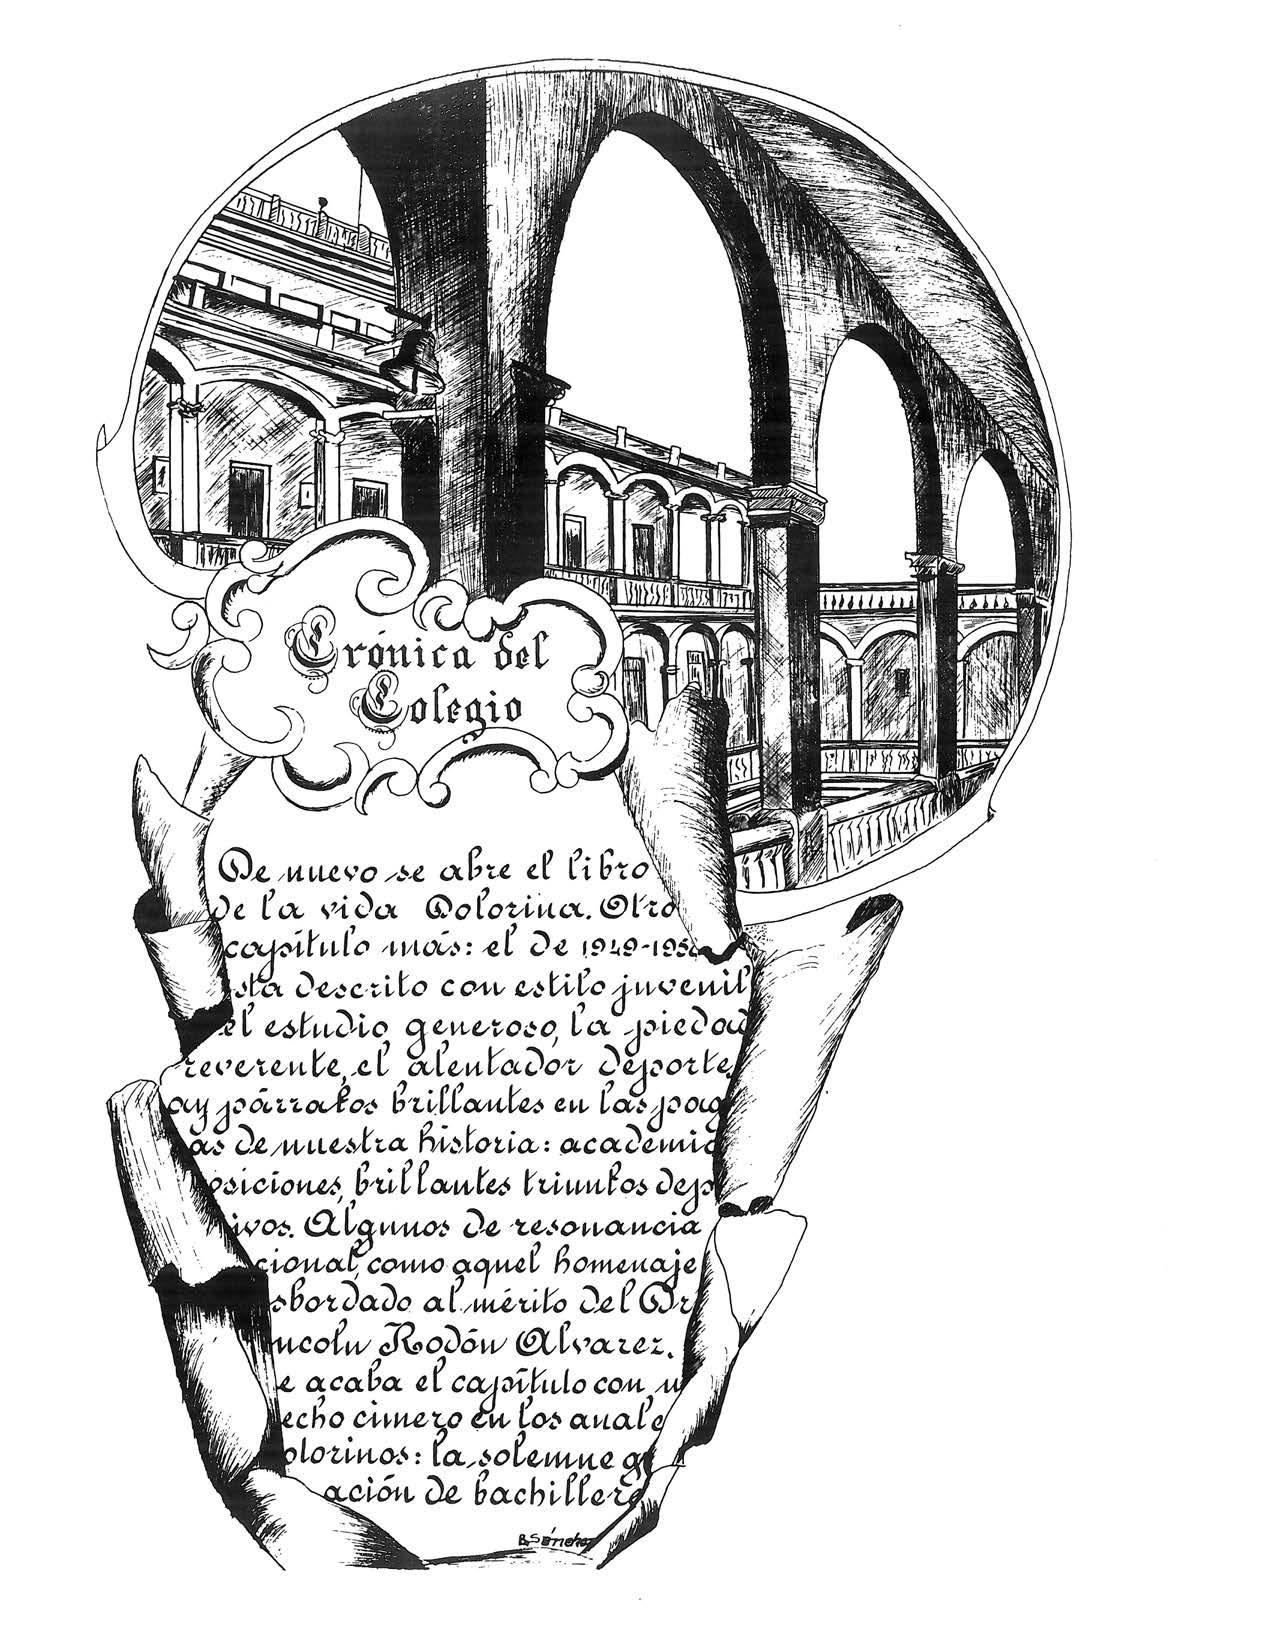 Crónica del
Colegio
De nuevo se abre el libro
de la vida Dolorina. Otro
capítulo más: el de 1949-195
sta descrito con estilo juvenil
el estudio generoso, la piedad
reverente, el alentador deporte,
ay párrafos brillantes en las pag
as de nuestra historia: academic
osiciones, brillantes triunfos dep
ivos. Algunos de resonancia
cional, como aquel homenaje
sbordado al mérito del Dr
ncoln Rodón Alvarez.
e acaba el capítulo con u
echo cimero en los anale
olorinos: la solemne g
ación de bachillere
B. Sánchez